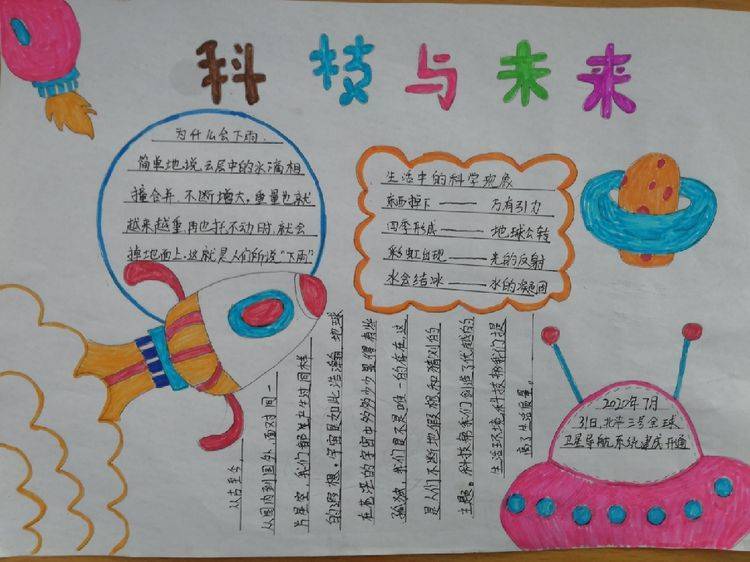 科技与未来
为什么会下雨
简单地说云层中的水滴相
撞合并,不断增大,重量也就
越来越重,再也托不动时,就会
掉地面上,这就是人们所说“下雨”
生活中的科学现象
东西掉下——万有引力
四季形成——地球公转
彩虹出现——光的反射
水会结冰——水的凝固
从古至今,
从国内到国外,面对同一
片星空,我们都生产过同样
的遐想。宇宙是如此浩瀚,地球
在苍茫的宇宙中多多少少显得有些
孤寂,我们是不是唯一的存在,这
是人们不断地假想和猜对的
主题。科技帮我们创造了优越的
生活环境,科技帮我们提
高了生活质量。
2020年7月
31日,北斗三号全球
卫星导航系统建成开通